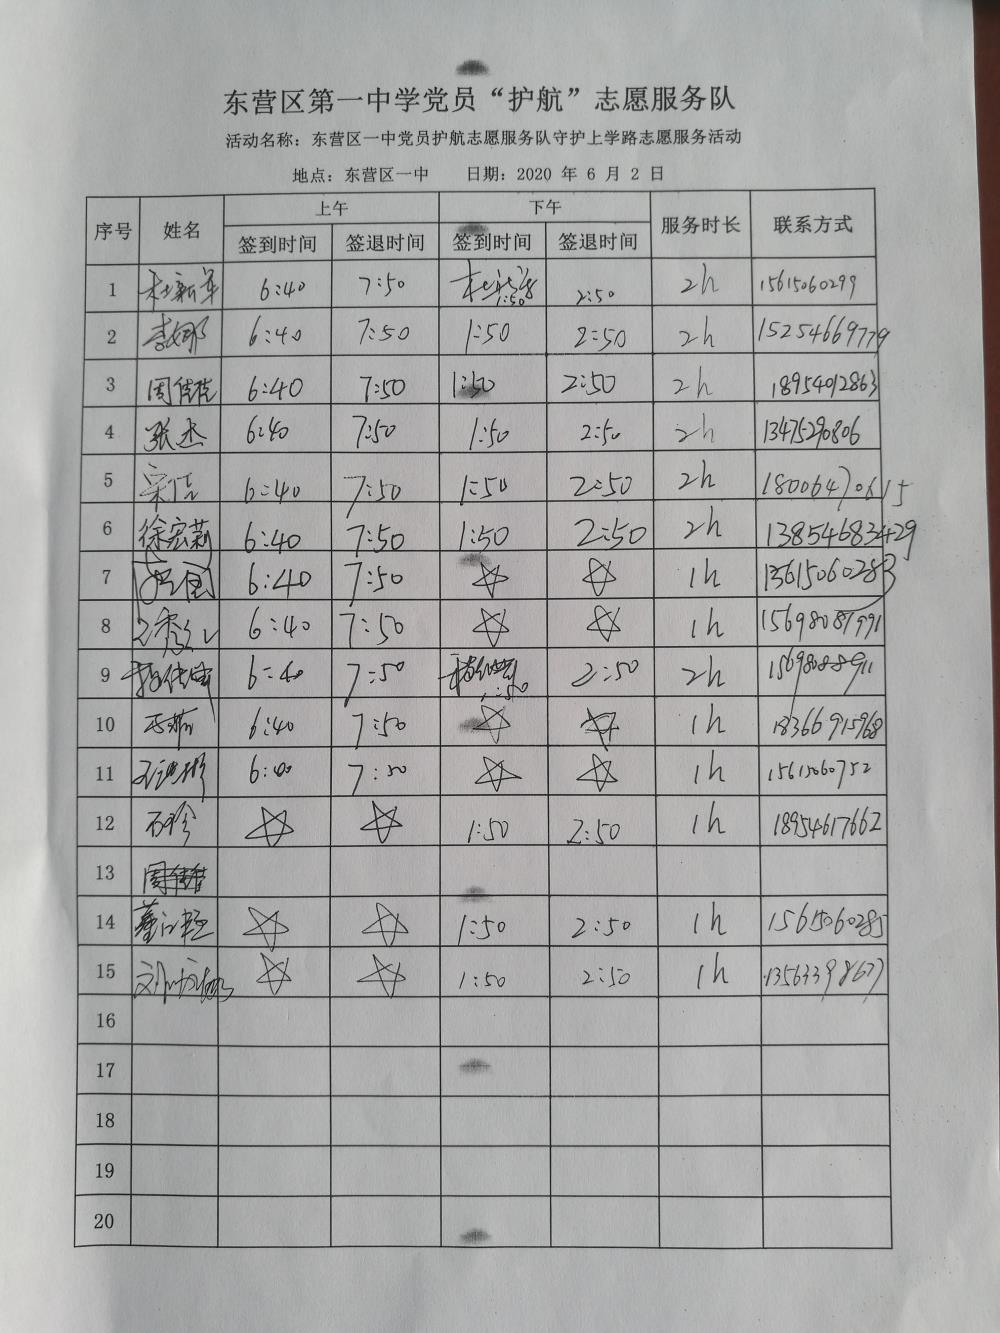 东营区第一中学党员“护航”志愿服务队
活动名称：东营区一中党员护航志愿服务队守护上学路志愿服务活动
地点：东营区一中 日期：2020 年 6 月 2 日
序号 姓名 上午 下午 服务时长 联系方式
签到时间 签退时间 签到时间 签退时间
1 6:40 7:50 1:50 2:50 2h 15615060299
2 李娜 6:40 7:50 1:50 2:50 2h 15254669779
3 周佳佳 6:40 7:50 1:50 2:50 2h 18954012863
4 张杰 6:40 7:50 1:50 2:50 2h 13475290806
5 6:40 7:50 1:50 2:50 2h 18006470615
6 徐宏莉 6:40 7:50 1:50 2:50 2h 13854683429
7 6:40 7:50 ☆ ☆ 1h 13615060283
8 6:40 7:50 ☆ ☆ 1h
9 6:40 7:50 1:50 2:50 2h 15698088911
10 6:40 7:50 ☆ ☆ 1h 18366915968
11 6:40 7:50 ☆ ☆ 1h 1561506752
12 石珍 ☆ ☆ 1:50 2:50 1h 18954617662
13
14 ☆ ☆ 1:50 2:50 1h 15615060285
15 ☆ ☆ 1:50 2:50 1h 13563398677
16
17
18
19
20